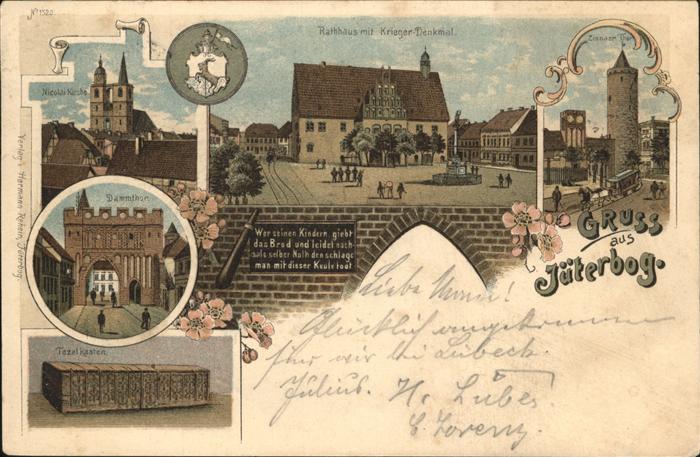 No 1520.
Rathhaus mit Krieger-Denkmal.
Zinnaer Thor.
Nicolai Kirche.
Dammthor.
Verlag Hermann Rehein, Jüterbog.
Wer seinen Kindern giebt
das Brod und leidet nach-
mals selber Noth den schlage
man mit dieser Keule todt
Gruss
aus
Jüterbog.
Tezelkasten.
Liebe !
Glücklich angekommen
sind wir bei Lübeck.
Julius. H. Lübes.
C. Lorenz.